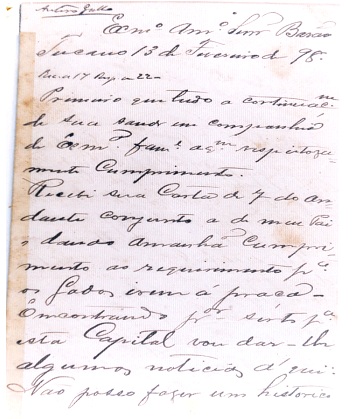 Arthur Gallo
Exmº Amº Snr Barão
Tucano 13 de Fevereiro de 98.
Rec a 17 Resp a 22 -
Primeiro que tudo a continuaçm
de sua saude em companhia
de Exmª famª a qm respeitoza-
mente cumprimento.
Recebi sua Carta de 7 do an
dante conjunto a de meu Pai
e dando amanhã Cumpri-
mento ao requerimento pª
os Gados irem á praça -
Encontrando pr serto pª
esta Capital vou dar-lhe
algumas noticias d'qui:
Não posso fazer um historico